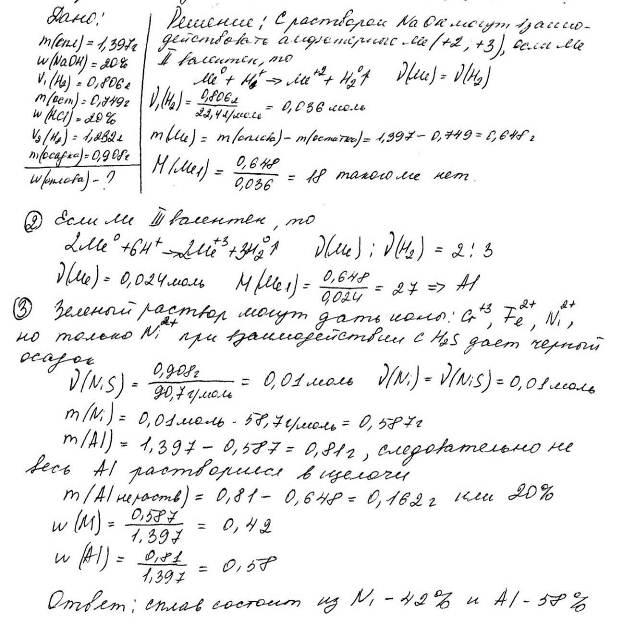 Дано:
m(спл) = 1,397г
w(NaOH) = 20%
V₁(H₂) = 0,806л
m(ост) = 0,749г
w(HCl) = 20%
V₂(H₂) = 1,232л
m(осадка) = 0,908г
w(сплава) - ?
Решение: С раствором NaOH могут взаимо-
действовать амфотерные Me (+2, +3), если Me
II валентен, то
Me⁰ + H₂⁺ → Me⁺² + H₂⁰↑ ν(Me) = ν(H₂)
ν₁(H₂) = 0,806л / 22,4л/моль = 0,036 моль
m(Me) = m(сплава) - m(остатка) = 1,397 - 0,749 = 0,648г
M(Me₁) = 0,648 / 0,036 = 18 такого Me нет.
② Если Me III валентен, то
2Me⁰ + 6H⁺ → 2Me⁺³ + 3H₂⁰↑ ν(Me) : ν(H₂) = 2 : 3
ν(Me) = 0,024 моль M(Me₁) = 0,648 / 0,024 = 27 => Al
③ Зеленый раствор могут дать ионы: Cr⁺³, Fe²⁺, Ni²⁺,
но только Ni²⁺ при взаимодействии с H₂S дает черный
осадок
ν(NiS) = 0,908г / 90,7г/моль = 0,01 моль ν(Ni) = ν(NiS) = 0,01 моль
m(Ni) = 0,01 моль · 58,7г/моль = 0,587г
m(Al) = 1,397 - 0,587 = 0,81г, следовательно не
весь Al растворился в щелочи
m(Al нераств) = 0,81 - 0,648 = 0,162г или 20%
w(M) = 0,587 / 1,397 = 0,42
w(Al) = 0,81 / 1,397 = 0,58
Ответ: сплав состоит из Ni - 42% и Al - 58%